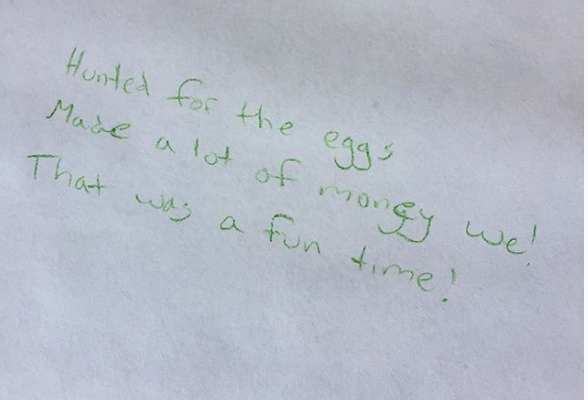 Hunted for the eggs
Made a lot of money we!
That was a fun time!